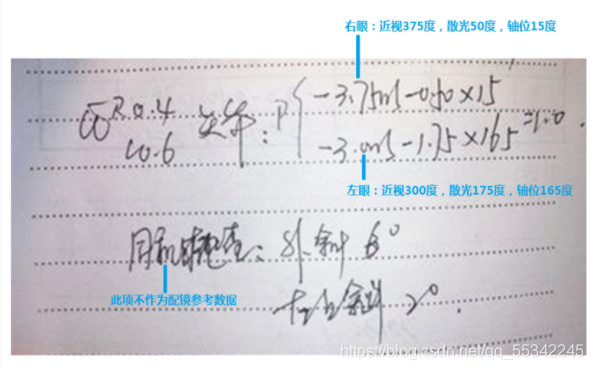 右眼：近视375度，散光50度，轴位15度
R 0.4
-3.75 -0.50×15
L 0.6
-3.00 -1.75×165 =1.0
左眼：近视300度，散光175度，轴位165度
外斜 6°
此项不作为配镜参考数据
2°
https://blog.csdn.net/qq_55342245